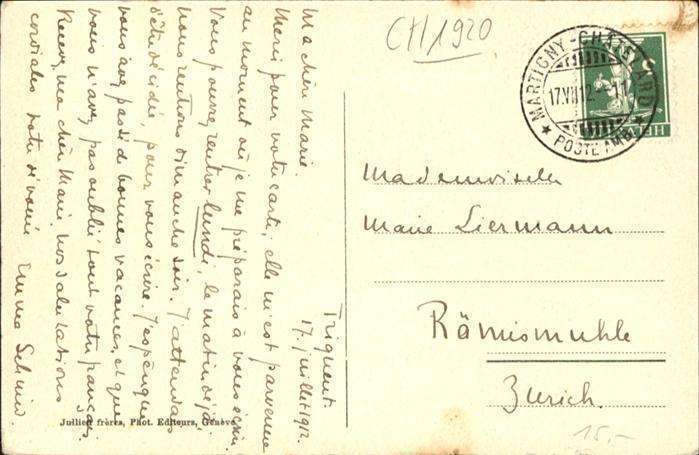 CH1920
MARTIGNY-CHATELARD
17.VII.12.-11
★ POSTE AMB. ★
HELVETIA
Triquent.
17. juillet 1912.
Ma chère Marie.
Merci pour votre carte, elle m'est parvenue
au moment où je me préparais à vous écrire.
Vous pouvez rentrer lundi, le matin déjà,
nous rentrons dimanche soir. J'attendais
d'être décidée, pour vous écrire. J'espère que
vous avez passé de bonnes vacances et que
vous n'avez pas oublié tout votre français.
Recevez, ma chère Marie, nos salutations
cordiales. Votre dévouée Emma Schmid.
Mademoiselle
Marie Liermann
Rämismuhle
Zurich.
Jullien frères, Phot. Editeurs, Genève
15.-